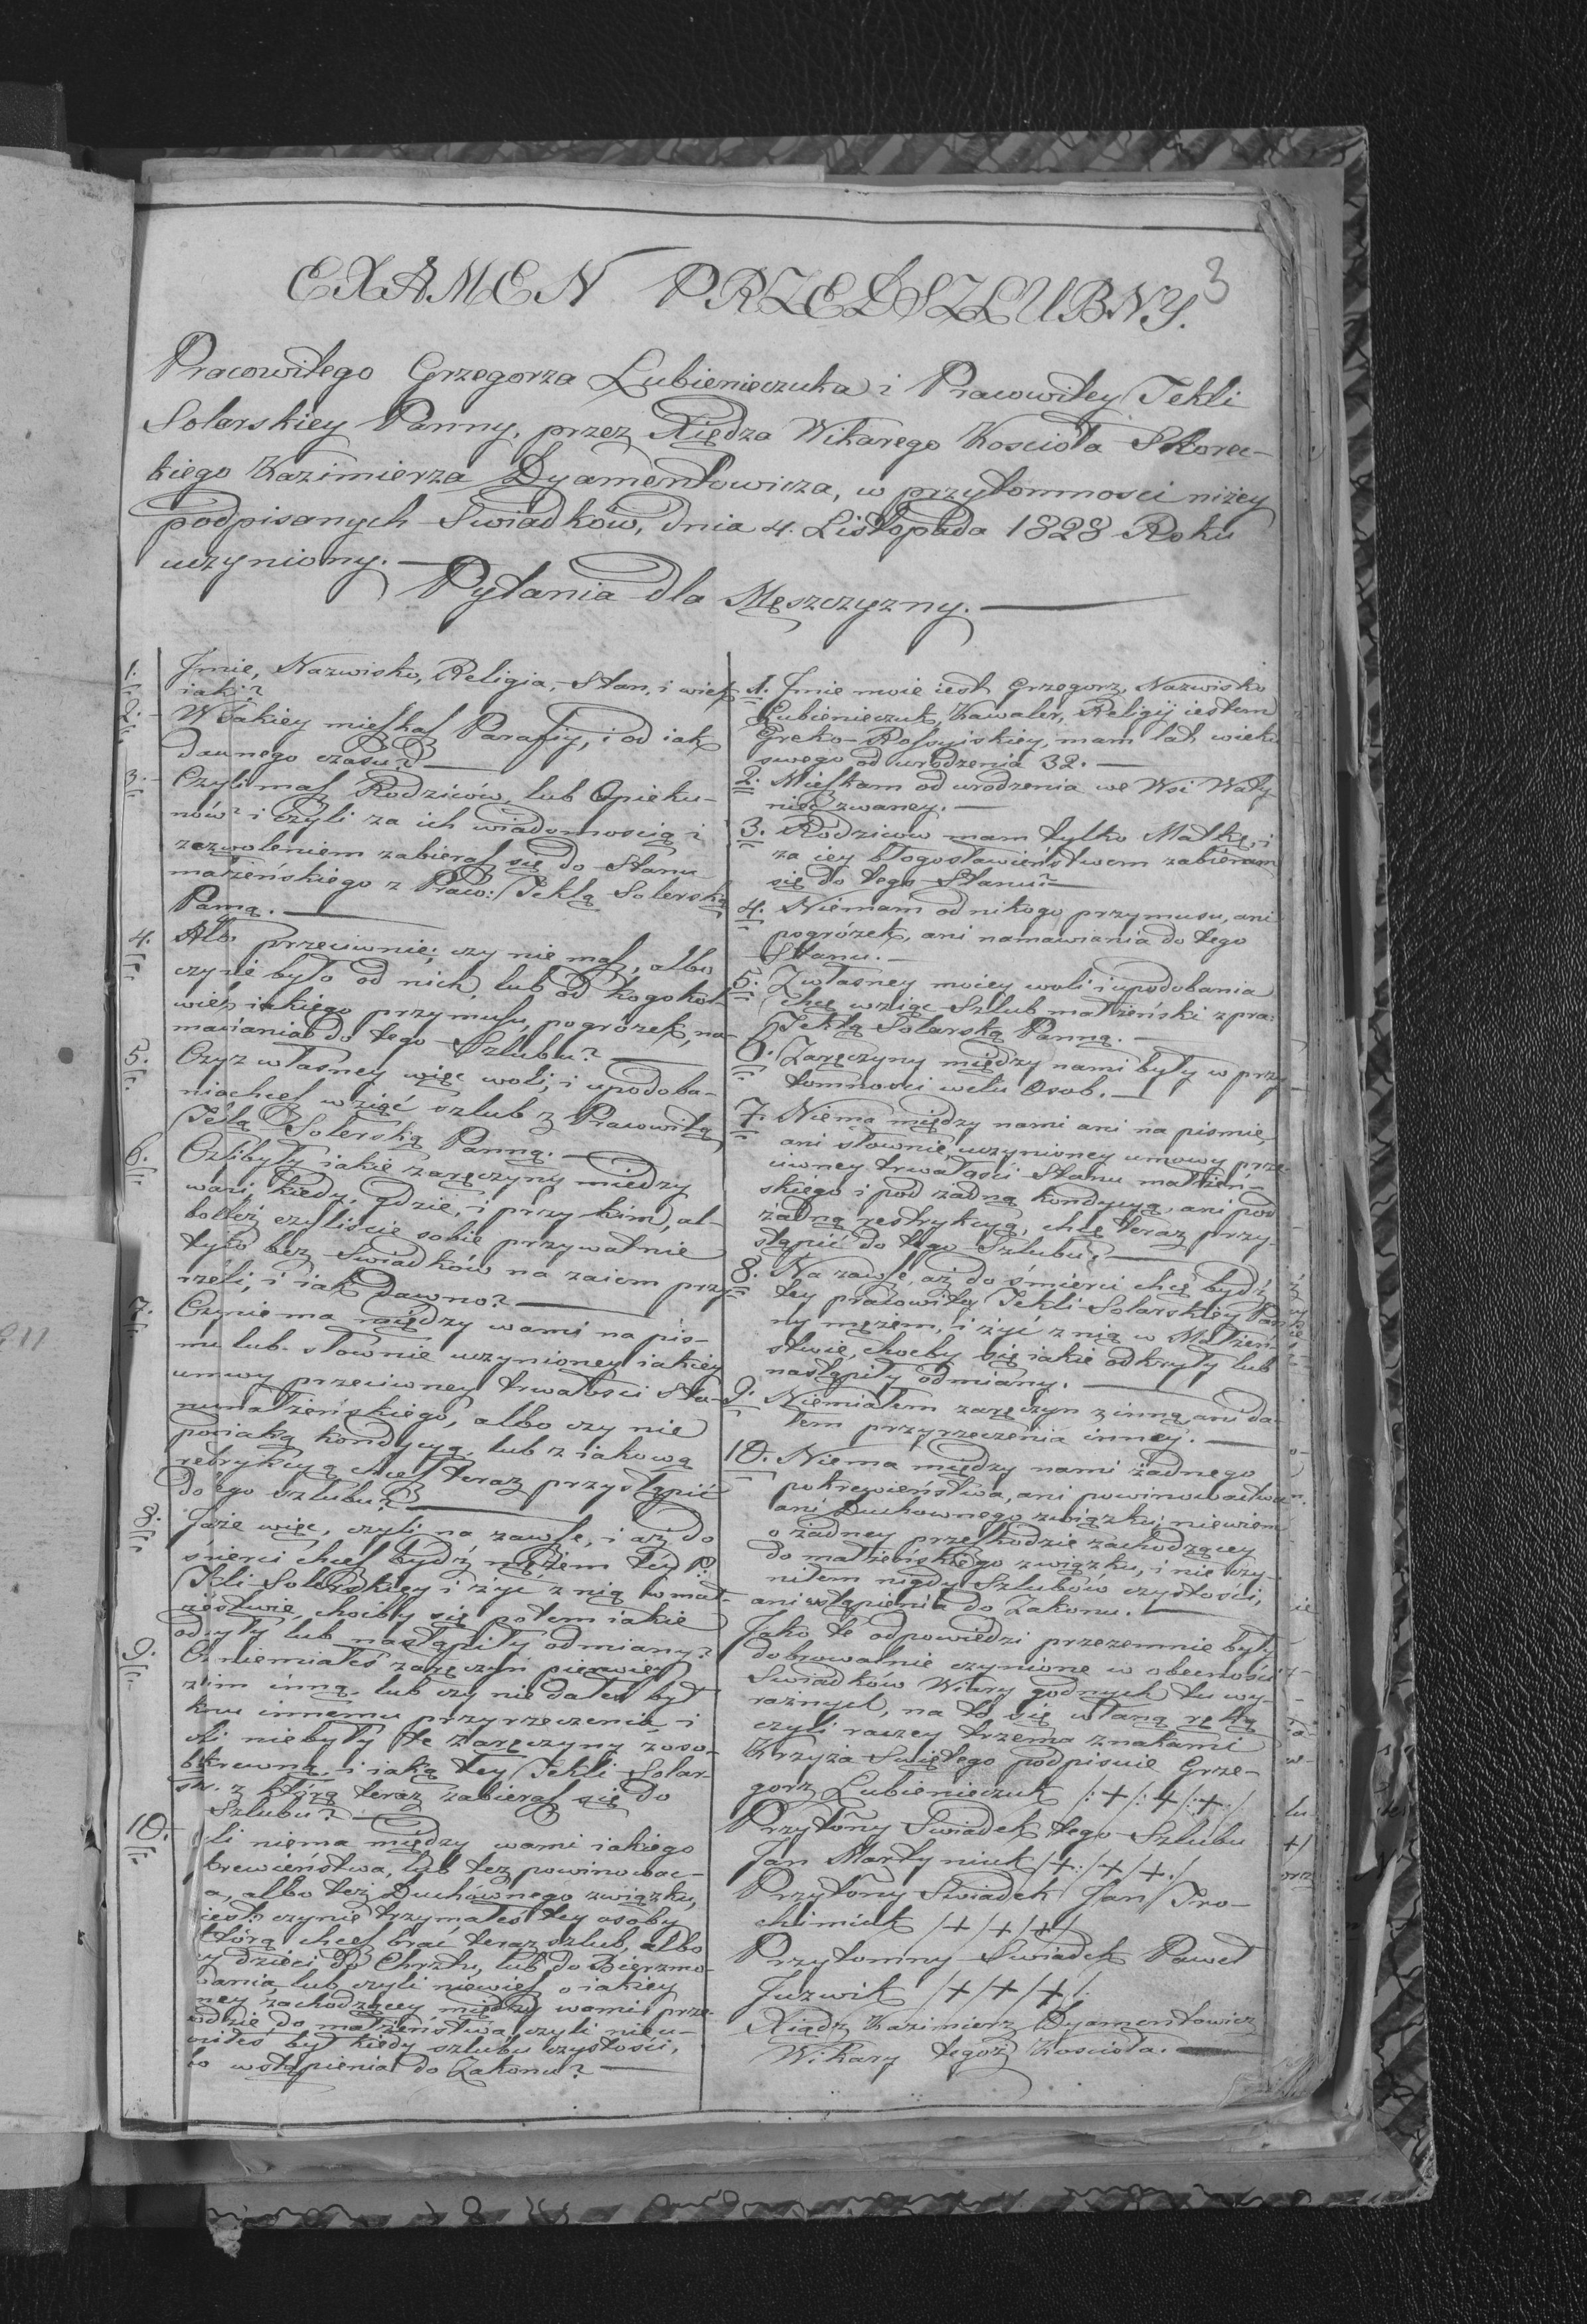 3
EXAMEN PRZEDSZLUBNY.
Pracowitego Grzegorza Lubienieczuka i Pracowitey Tekli
Solarskiey Panny, przez Xiędza Wikarego Koscioła Skorec-
kiego Kazimierza Dyamentowicza, w przytomnosci niżey
podpisanych Swiadków, dnia 4. Listopada 1828 Roku
uczyniony.
Pytania dla Męszczyzny.
1. Jmie, Nazwisko, Religia, Stan, i wiek
iaki?
2. W iakiey mieszkasz Parafiy, i od iak
dawnego czasu?
3. Czyli masz Rodziców, lub Opieku-
nów? i czyli za ich wiadomoscią i
zezwoleniem zabierasz się do Stanu
małżeńskiego z Praco: Teklą Solerską
Panną.
4. Albo przeciwnie, czy nie masz, albo
czy nie było od nich, lub od kogokol-
wiek iakiego przymusu, pogrózek, na-
mawiania do tego Szlubu?
5. Czy z własney więc woli, i upodoba-
nia chcesz wziąć szlub z Pracowitą
Teklą Solerską Panną.
6. Czli były iakie zaręczyny miedzy
wami, kiedy, gdzie, i przy kim, al-
bo też czyliscie sobie przywatnie
tylo bez Swiadków na zaiem przy-
rzekli, i iak dawno?
7. Czy niema między wami na pis-
mu lub słownie uczynioney iakiey
umowy przeciwney trwałosci Sta-
nu małżeńskiego, albo czy nie
pod iaką kondycyą, lub z iakową
restrykcyą chcesz teraz przystąpić
do tego szlubu?
8. Jaże więc, czyli na zawsze, i aż do
śmierci chcesz bydź mężem téy P.
Tekli Solerskiey i żyć z nią w mał-
żeństwie, choćiby się potem iakie
odkryły lub nastąpiły odmiany?
9. Czy niemiałeś zaręczyn pierwiey
z kim inną, lub czy nie dałeś był
komu innemu przyrzeczenia i
czli niebyły te zaręczyny z oso-
bą krewną, i iaką tey Tekli Solar-
skiey z którą teraz zabierasz się do
Szlubu?
10. Czyli niema między wami iakiego
pokrewieństwa, lub też powinowac-
twa, albo też Duchównego związku,
to iest czy nie trzymałeś tey osoby
którą chcesz brać teraz szlub, albo
iey dzieci do Chrztu, lub do Bierzmo-
wania, lub czyli niewiesz o iakiey
inney zachodzącey między wami prze-
szkodzie do małżeństwa, czyli nie u-
czyniłeś był kiedy szlubu czystości,
albo wstąpienia do Zakonu?
1. Jmie moie iest Grzegorz, Nazwisko
Lubienieczuk, Kawaler, Religij iestem
Greko-Rossyiskiey, mam lat wieku
swego od urodzenia 32.
2. Mieszkam od urodzenia we Wsi Woły-
niec zwaney.
3. Rodziców mam tylko Matkę, i
za iey błogosławieństwem zabieram
się do tego Stanu.
4. Niemam od nikogo przymusu, ani
pogrózek, ani namawiania do tego
Stanu.
5. Z własney moiey woli i upodobania
chcę wziąć Szlub małżeński z pra:
Teklą Solarską Panną.
6. Zaręczyny między nami były w przy-
tomnosci wielu Osob.
7. Niema między nami ani na pismie,
ani słownie uczynioney umowy prze-
ciwney trwałości Stanu małżeń-
skiego i pod żadną kondycyą, ani pod
żadną restrykcyą, chcę teraz przy-
stąpić do tego Szlubu.
8. Na zawsze, aż do śmierci chcę bydź
tey pracowitey Tekli Solarskiey Pan-
ny mężem, i żyć z nią w Małżeń-
stwie, choćby się iakie odkryły lub
nastąpiły odmiany.
9. Niemiałem zaręczyn z inną, ani da-
łem przyrzeczenia inney.
10. Niema między nami żadnego
pokrewieństwa, ani powinowactwa
ani Duchownego związku; niewiem
o żadney przeszkodzie zachodzącey
do małżeńskiego związku, i nie czy-
niłem nigdy Szlubów czystości,
ani wstąpienia do Zakonu.
Jako te odpowiedzi przezemnie były
dobrowolnie czynione w obecności
Swiadków Wiary godnych tu wy-
raznych, na to się własną ręką
czyli raczey trzema znakami
Krzyża Swiętego podpisuie Grze-
gorz Lubienieczuk /:+/:+/:+/
Przytomny Swiadek tego Szlubu
Jan Martyniuk /+/+/+/
Przytomny Swiadek Jan Tro-
chimiuk /+/+/+/
Przytomny Swiadek Paweł
Juzwik /+/+/+/
Xiądz Kazimierz Dyamentowicz
Wikary tegoż Kościoła.